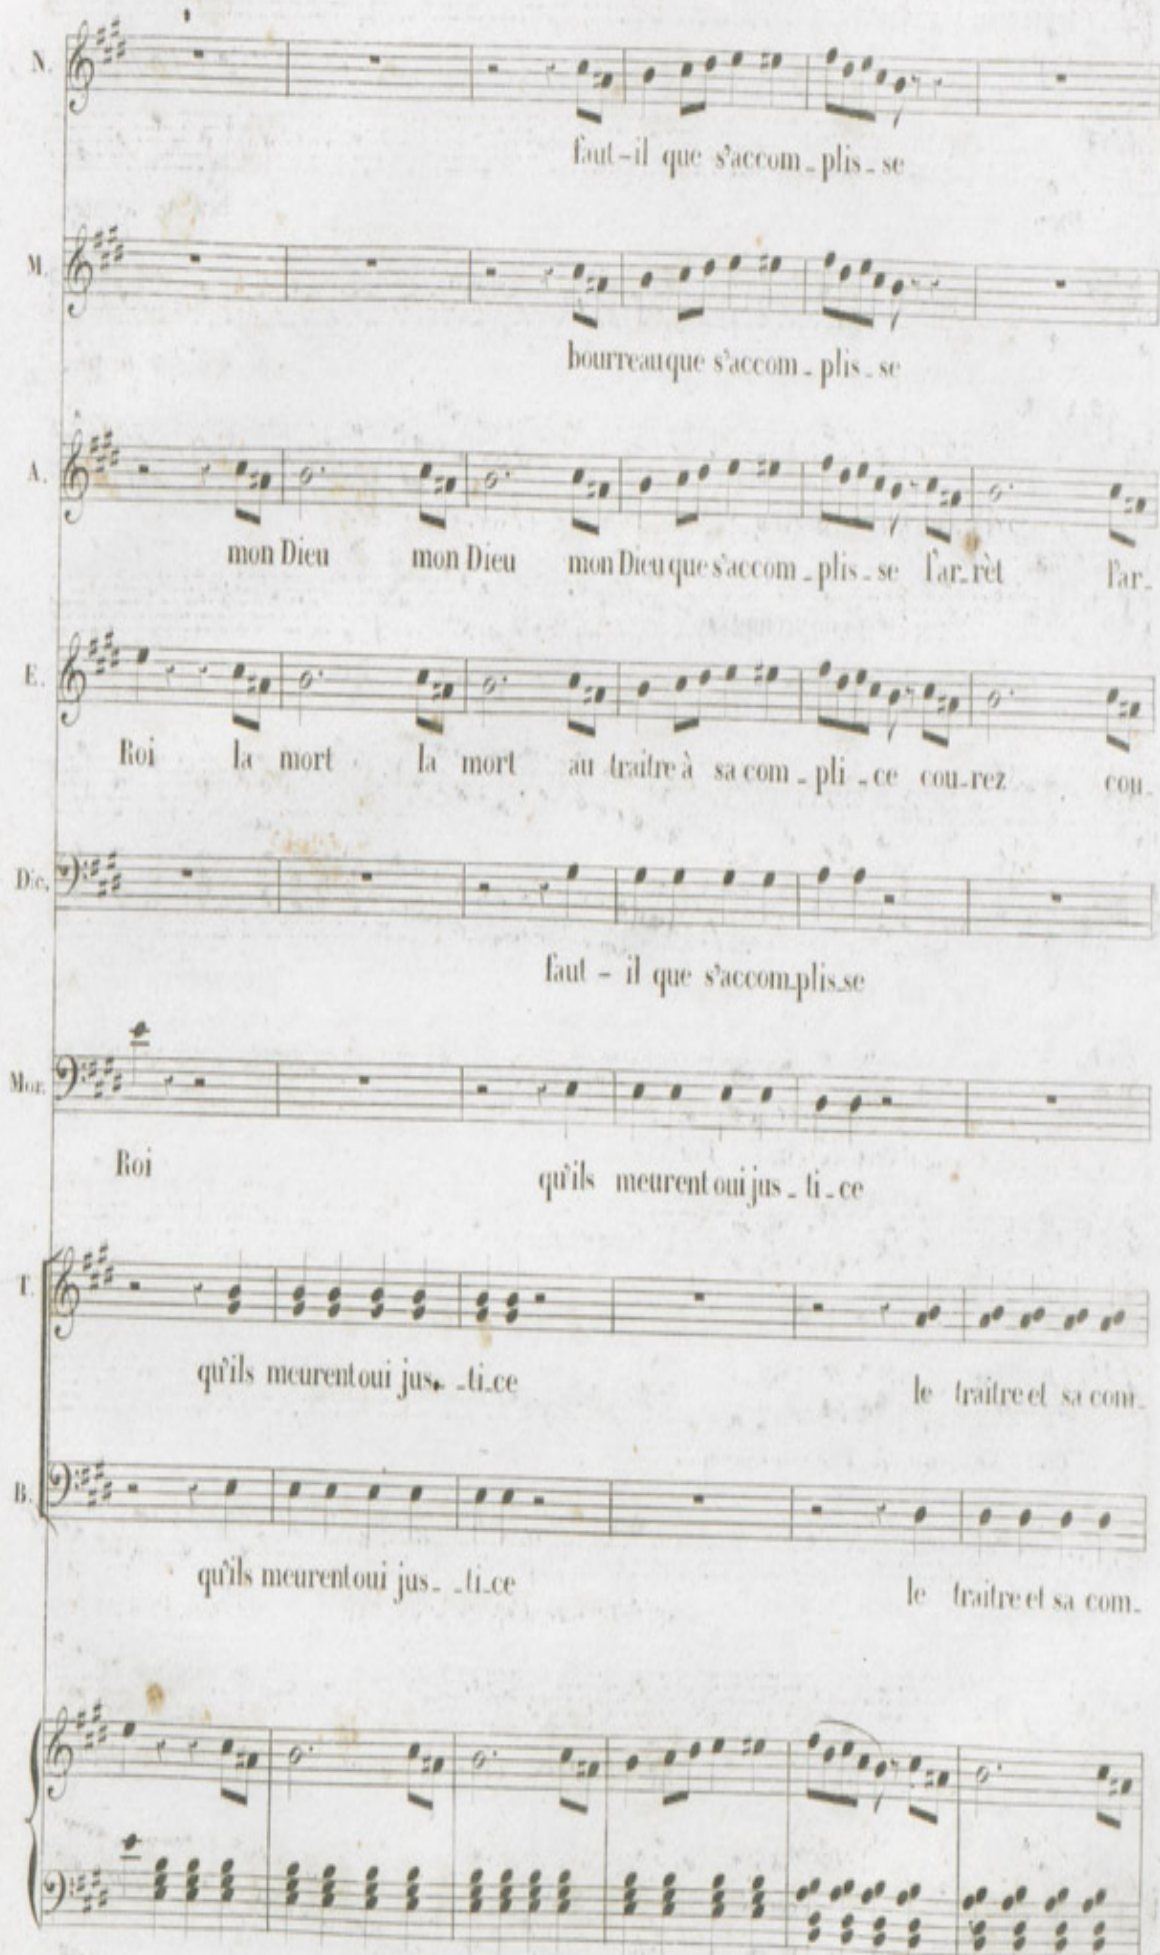 N.
faut-il que s'accom-plis-se
M.
bourreau que s'accom-plis-se
A.
mon Dieu mon Dieu mon Dieu que s'accom-plis-se l'ar-rèt l'ar-
E.
Roi la mort la mort au traitre à sa com-pli-ce cou-rez cou-
Dic.
faut-il que s'accom-plis-se
Mor.
Roi qu'ils meurent oui jus-ti-ce
T.
qu'ils meurent oui jus-ti-ce le traitre et sa com-
B.
qu'ils meurent oui jus-ti-ce le traitre et sa com-